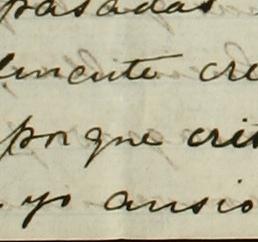 pasadas
lmente cre
porque cris
yo ansio